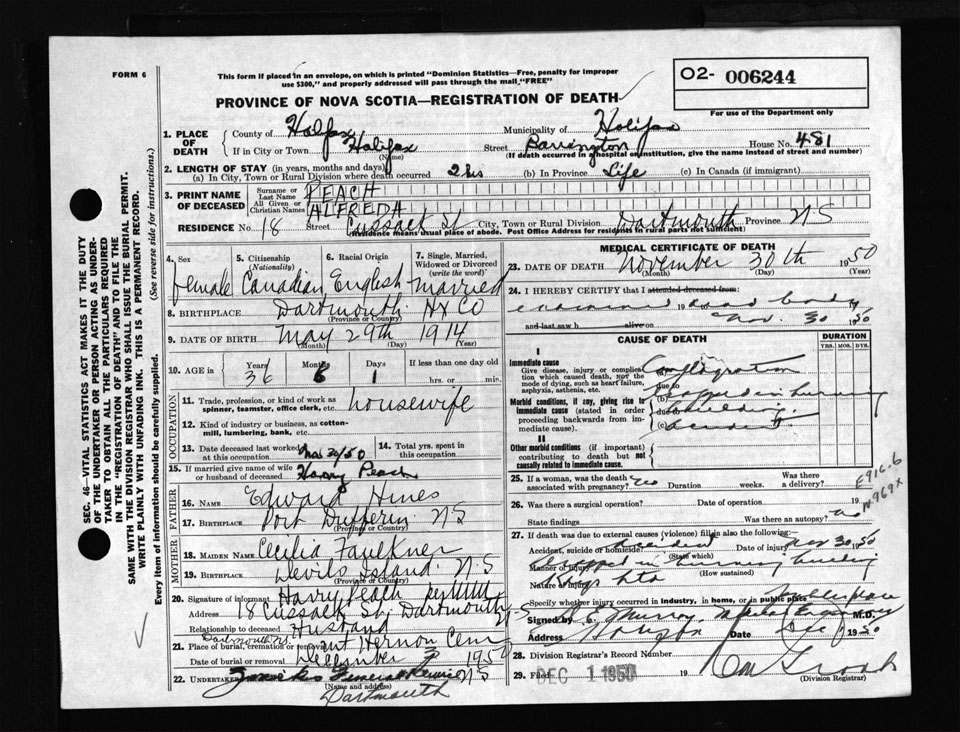 FORM 6
This form if placed in an envelope, on which is printed "Dominion Statistics—Free, penalty for improper
use $300," and properly addressed will pass through the mail "FREE"
O2- 006244
PROVINCE OF NOVA SCOTIA—REGISTRATION OF DEATH
For use of the Department only
1. PLACE OF DEATH
County of Halifax Municipality of Halifax
If in City or Town Halifax (Name) Street Barrington House No. 481
(If death occurred in a hospital or institution, give the name instead of street and number)
2. LENGTH OF STAY (in years, months and days)
(a) In City, Town or Rural Division where death occurred 2 hrs (b) In Province Life (c) In Canada (if immigrant)
3. PRINT NAME OF DECEASED
Surname or Last Name PEACH
All Given or Christian Names ALFREDA
RESIDENCE No. 18 Street Cussack St City, Town or Rural Division Dartmouth Province N S
(Residence means usual place of abode. Post Office Address for residents in rural parts not sufficient)
4. Sex 5. Citizenship (Nationality) 6. Racial Origin 7. Single, Married, Widowed or Divorced (write the word)
female Canadian English married
8. BIRTHPLACE Dartmouth Hx Co
(Province or Country)
9. DATE OF BIRTH May 29th 1914
(Month) (Day) (Year)
10. AGE in Years Months Days If less than one day old
36 6 1 hrs. or min.
OCCUPATION
11. Trade, profession, or kind of work as spinner, teamster, office clerk, etc. housewife
12. Kind of industry or business, as cotton-mill, lumbering, bank, etc.
13. Date deceased last worked at Nov 30/50 14. Total yrs. spent in this occupation
15. If married give name of wife or husband of deceased Harry Peach
FATHER
16. Name Edward Hines
17. Birthplace Port Dufferin NS
(Province or Country)
MOTHER
18. Maiden Name Cecilia Faulkner
19. Birthplace Devils Island N.S
(Province or Country)
20. Signature of informant Harry Peach
Address 18 Cussack St. Dartmouth N-S
Relationship to deceased Husband
Dartmouth NS.
21. Place of burial, cremation or removal Mount Hernon Cem
Date of burial or removal December 3 1950
22. Undertaker Funeral Service NS
(Name and address)
Dartmouth
MEDICAL CERTIFICATE OF DEATH
23. DATE OF DEATH November 30th 1950
(Month) (Day) (Year)
24. I HEREBY CERTIFY that I attended deceased from:
examined 19 dead body
and last saw h alive on Nov. 30 1950
CAUSE OF DEATH
DURATION
YRS. MOS. DYS.
I
Immediate cause
Give disease, injury or complication which caused death, not the mode of dying, such as heart failure, asphyxia, asthenia, etc.
(a) Conflagration
due to
Trapped in burning
Morbid conditions, if any, giving rise to immediate cause (stated in order proceeding backwards from immediate cause).
(b) building.
due to
(c) accident.
II
Other morbid conditions (if important) contributing to death but not causally related to immediate cause.
25. If a woman, was the death associated with pregnancy? no Duration weeks. Was there a delivery?
E916.6
N969X
26. Was there a surgical operation? Date of operation 19
State findings Was there an autopsy? no
27. If death was due to external causes (violence) fill in also the following:
Accident, suicide or homicide? accident Date of injury Nov 30 1950
(State which)
Manner of injury Trapped in burning building
(How sustained)
Nature of injury
Specify whether injury occurred in industry, in home, or in public place Public place
Signed by Medical Examiner M.D.
Address Halifax Date Dec 1 1950
28. Division Registrar's Record Number
29. Filed DEC 1 1950 19
(Division Registrar)
SEC. 46—VITAL STATISTICS ACT MAKES IT THE DUTY
OF THE UNDERTAKER OR PERSON ACTING AS UNDER-
TAKER TO OBTAIN ALL THE PARTICULARS REQUIRED
IN THE "REGISTRATION OF DEATH" AND TO FILE THE
SAME WITH THE DIVISION REGISTRAR WHO SHALL ISSUE THE BURIAL PERMIT.
WRITE PLAINLY WITH UNFADING INK. THIS IS A PERMANENT RECORD.
Every item of information should be carefully supplied. (See reverse side for instructions.)